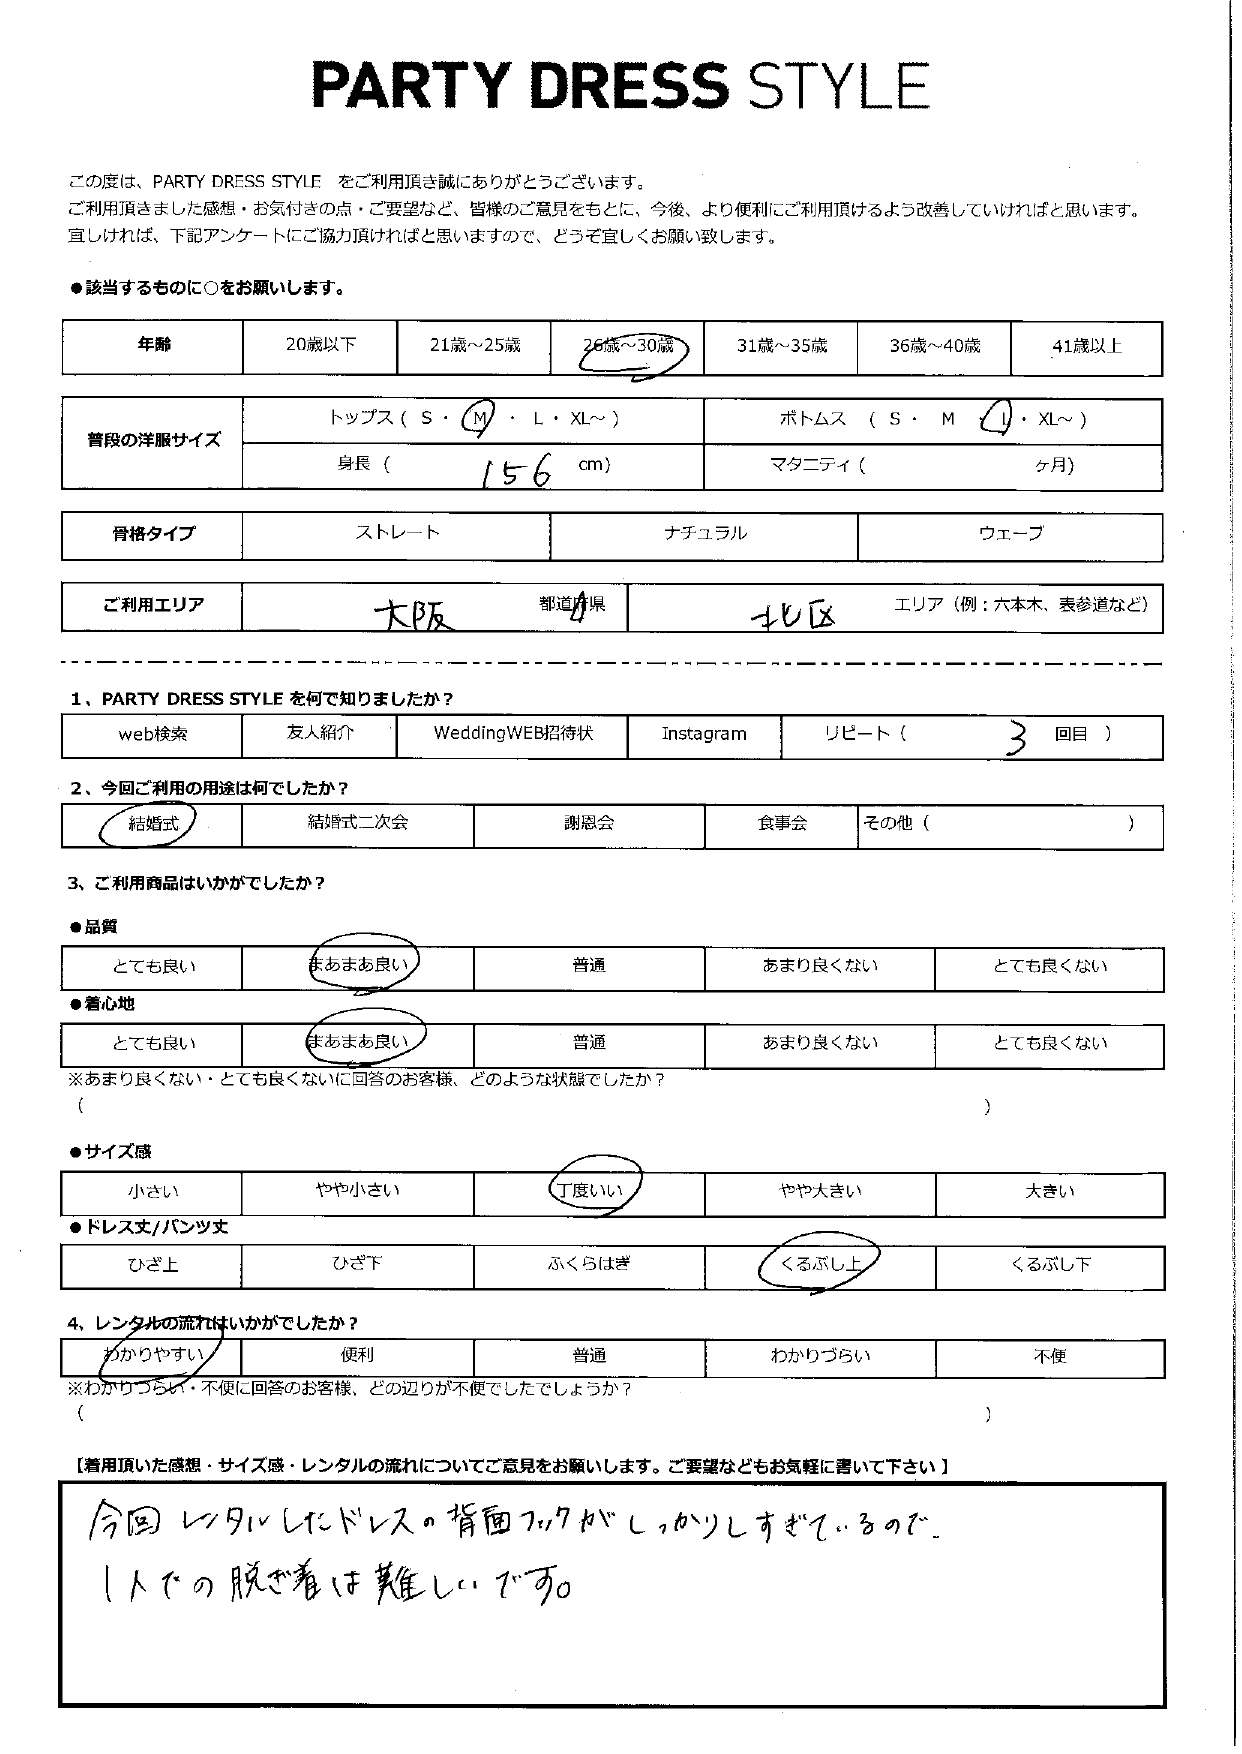 PARTY DRESS STYLE
この度は、PARTY DRESS STYLE をご利用頂き誠にありがとうございます。
ご利用頂きました感想・お気付きの点・ご要望など、皆様のご意見をもとに、今後、より便利にご利用頂けるよう改善していければと思います。
宜しければ、下記アンケートにご協力頂ければと思いますので、どうぞ宜しくお願い致します。
●該当するものに○をお願いします。
年齢 20歳以下 21歳～25歳 26歳～30歳 31歳～35歳 36歳～40歳 41歳以上
普段の洋服サイズ
トップス ( S ・ M ・ L ・ XL～ ) ボトムス ( S ・ M ・ L ・ XL～ )
身長 ( 156 cm) マタニティ ( ヶ月)
骨格タイプ ストレート ナチュラル ウェーブ
ご利用エリア 大阪 都道府県 北区 エリア（例：六本木、表参道など）
1、PARTY DRESS STYLE を何で知りましたか？
web検索 友人紹介 WeddingWEB招待状 Instagram リピート（ 3 回目 ）
2、今回ご利用の用途は何でしたか？
結婚式 結婚式二次会 謝恩会 食事会 その他（ ）
3、ご利用商品はいかがでしたか？
●品質
とても良い まあまあ良い 普通 あまり良くない とても良くない
●着心地
とても良い まあまあ良い 普通 あまり良くない とても良くない
※あまり良くない・とても良くないに回答のお客様、どのような状態でしたか？
（ ）
●サイズ感
小さい やや小さい 丁度いい やや大きい 大きい
●ドレス丈/パンツ丈
ひざ上 ひざ下 ふくらはぎ くるぶし上 くるぶし下
4、レンタルの流れはいかがでしたか？
わかりやすい 便利 普通 わかりづらい 不便
※わかりづらい・不便に回答のお客様、どの辺りが不便でしたでしょうか？
（ ）
【着用頂いた感想・サイズ感・レンタルの流れについてご意見をお願いします。ご要望などもお気軽に書いて下さい】
今回レンタルしたドレスの背面フックがしっかりしすぎているので、
1人での脱ぎ着は難しいです。